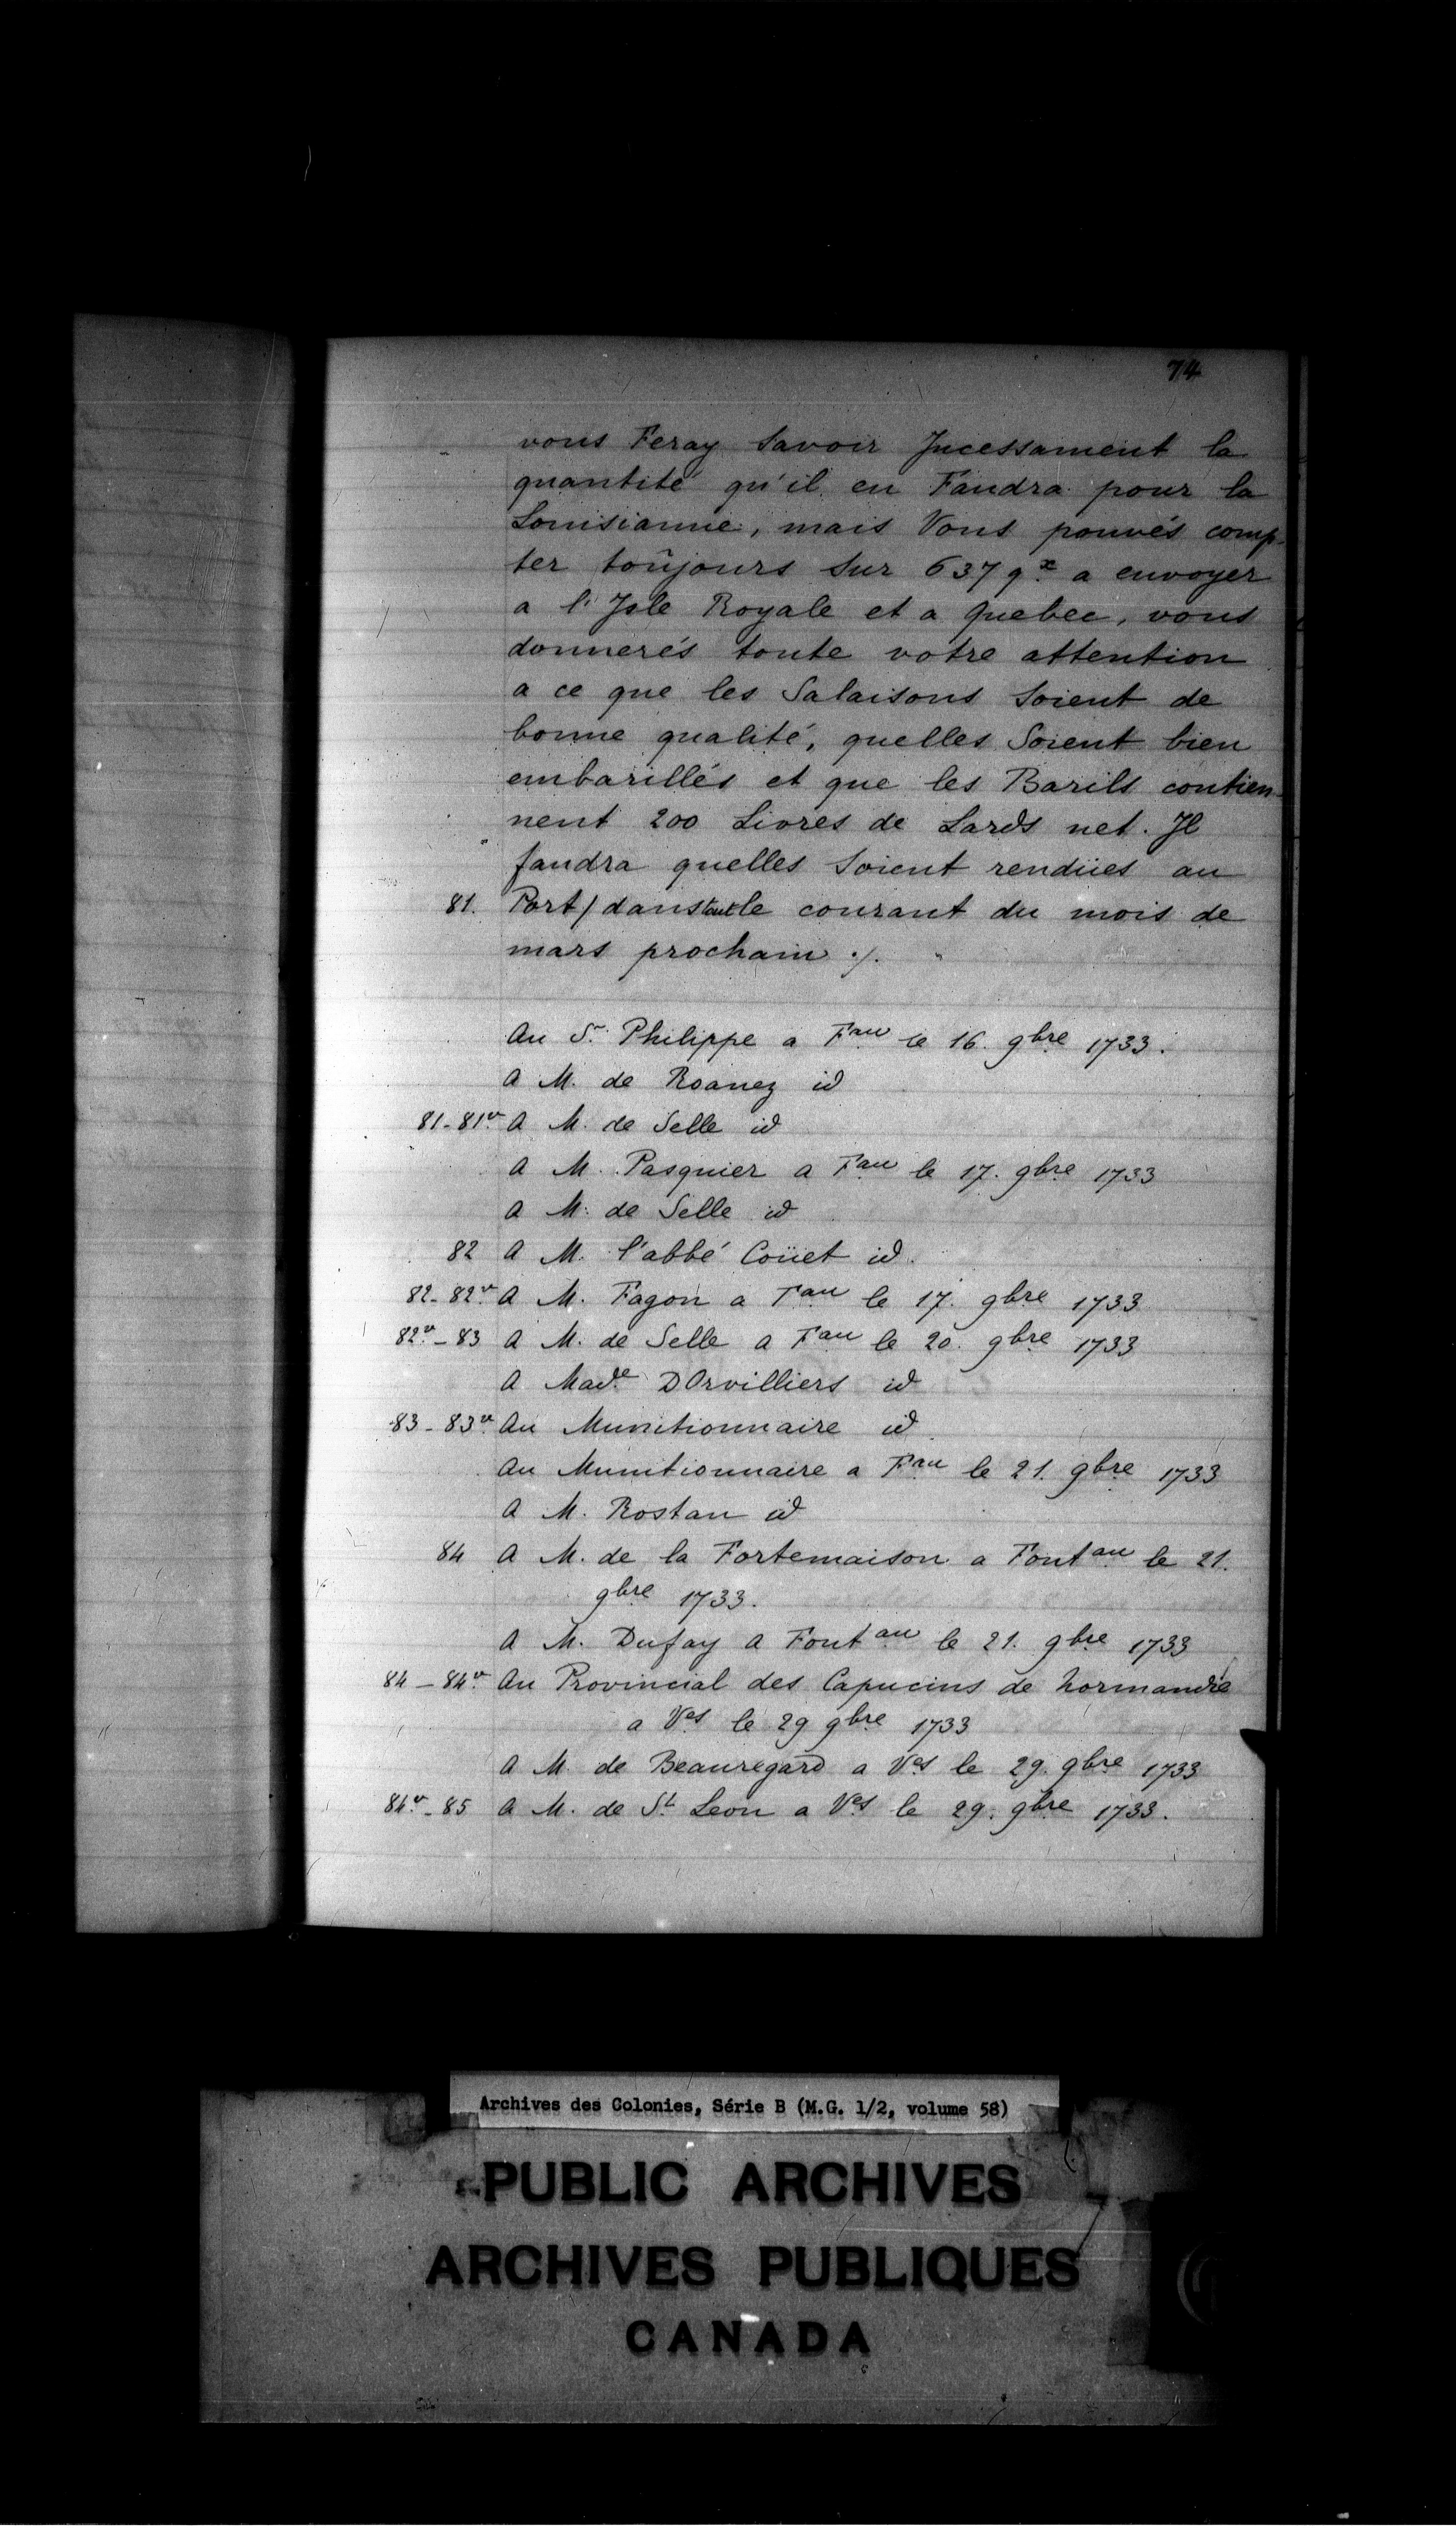 74
vous Feray Savoir Jncessament la
quantité qu'il en Faudra pour la
Louisianne, mais Vous pouvés comp-
ter toûjours Sur 637 qx a envoyer
a l'Jsle Royale et a Quebec, vous
donnerés toute votre attention
a ce que les Salaisons Soient de
bonne qualité, quelles Soient bien
embarillés et que les Barils contien-
nent 200 Livres de Lards net. Jl
faudra quelles Soient rendües au
81. Port/dans tout le courant du mois de
mars prochain ./.
Au Sr. Philippe a Fau le 16. 9bre 1733.
A M. de Roanez id
81-81v. A M. de Selle id
A M. Pasquier a Fau le 17. 9bre 1733
A M. de Selle id
82 A M. l'abbé Coüet id.
82-82v. A M. Fagon a Fau le 17. 9bre 1733
82v.-83 A M. de Selle a Fau le 20. 9bre 1733
A Made. DOrvilliers id
83-83v. Au Munitionnaire id
Au Munitionnaire a Fau le 21. 9bre 1733
A M. Rostan id
84 A M. de la Fortemaison a Fontau le 21.
9bre 1733.
A M. Dufay a Fontau le 21. 9bre 1733
84-84v. Au Provincial des Capucins de Normandie
a Ves le 29 9bre 1733
A M. de Beauregard a Ves le 29. 9bre 1733
84v.-85 A M. de St Leon a Ves le 29. 9bre 1733.
Archives des Colonies, Série B (M.G. 1/2, volume 58)
PUBLIC ARCHIVES
ARCHIVES PUBLIQUES
CANADA